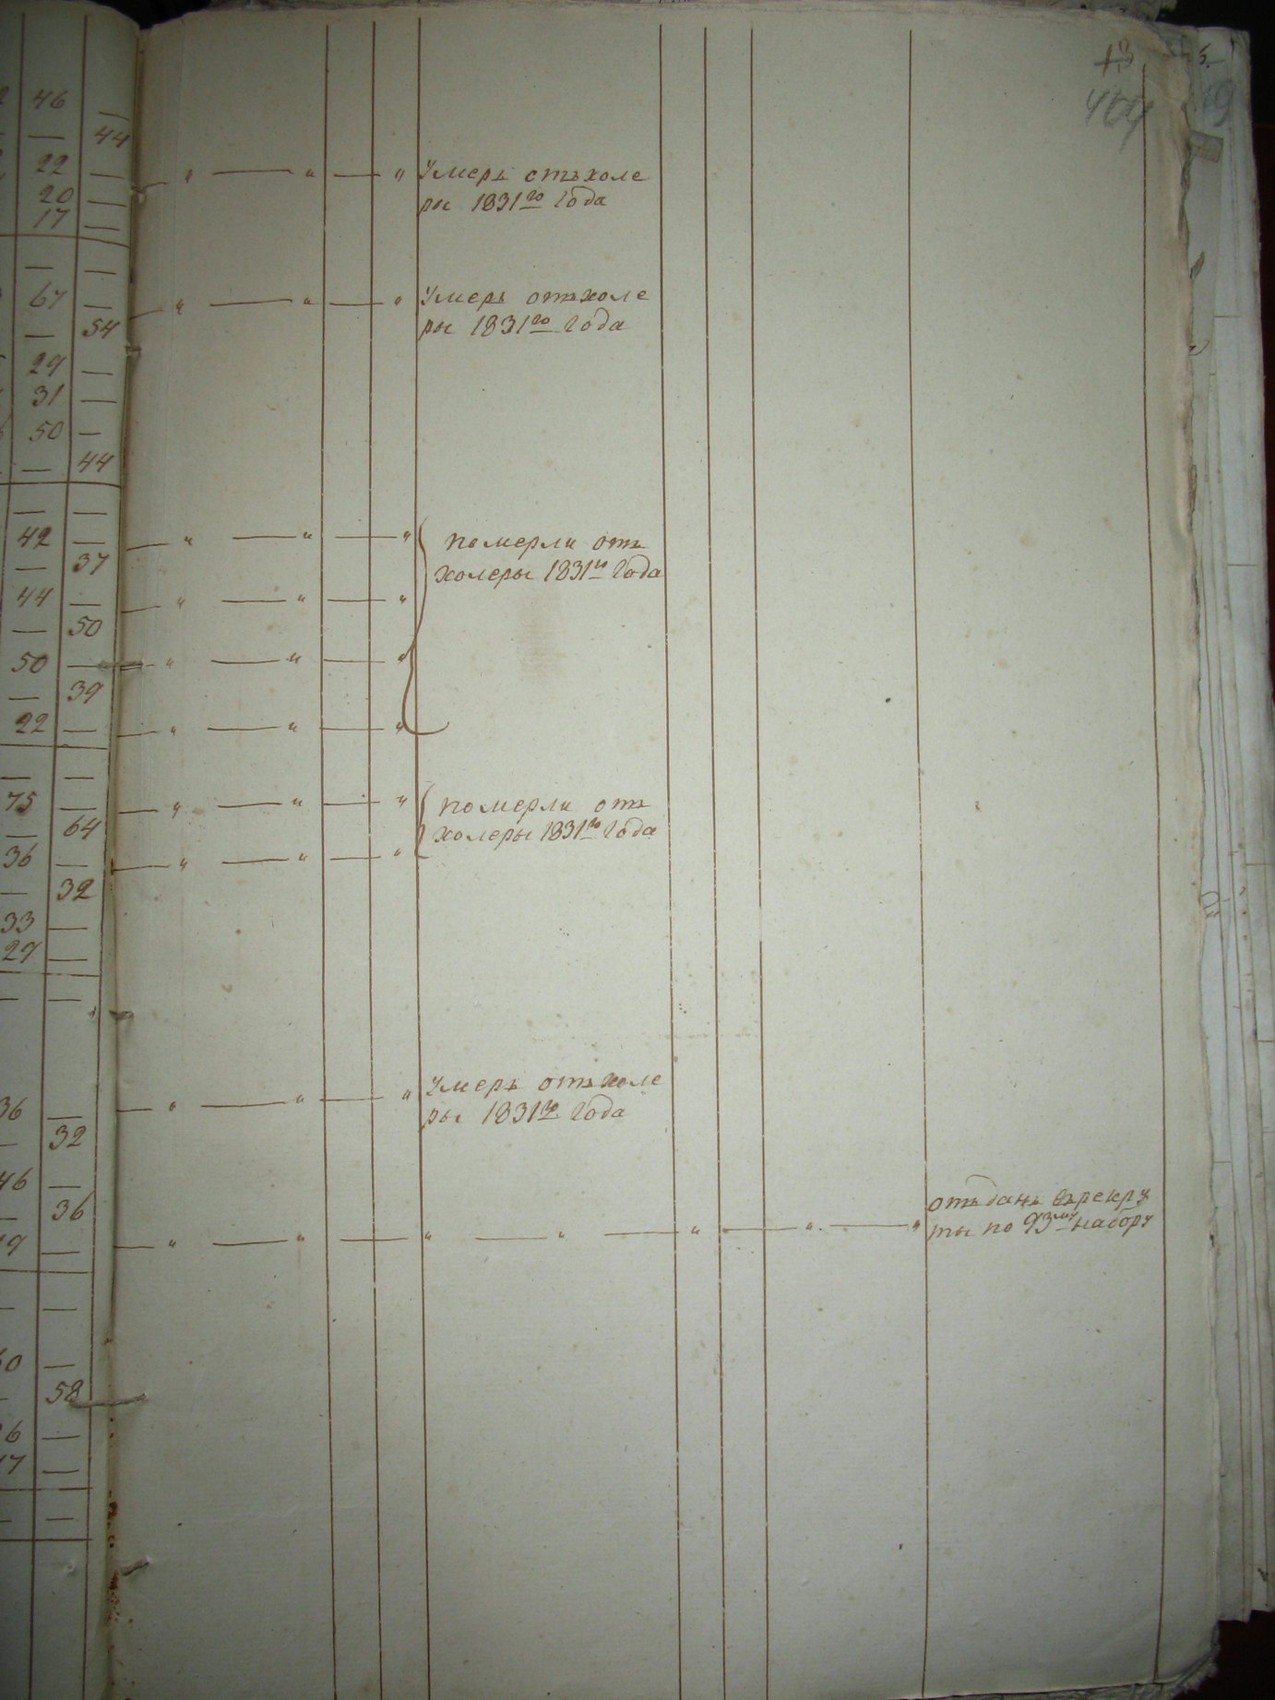 46 —
— 44
22 —
20 —
17 —
— —
67 —
— 54
29 —
31 —
50 —
— 44
— —
42 —
— 37
44 —
— 50
50 —
— 39
22 —
— —
75 —
— 64
36 —
— 32
33 —
29 —
— —
36 —
— 32
46 —
— 36
19 —
— —
— 58
— —
13
409
Умеръ отъ холе
ры 1831го года
Умеръ отъ холе
ры 1831го года
померли отъ
холеры 1831го года
померли отъ
холеры 1831го года
Умеръ отъ холе
ры 1831го года
отъданъ въ рекру
ты по 93му набору